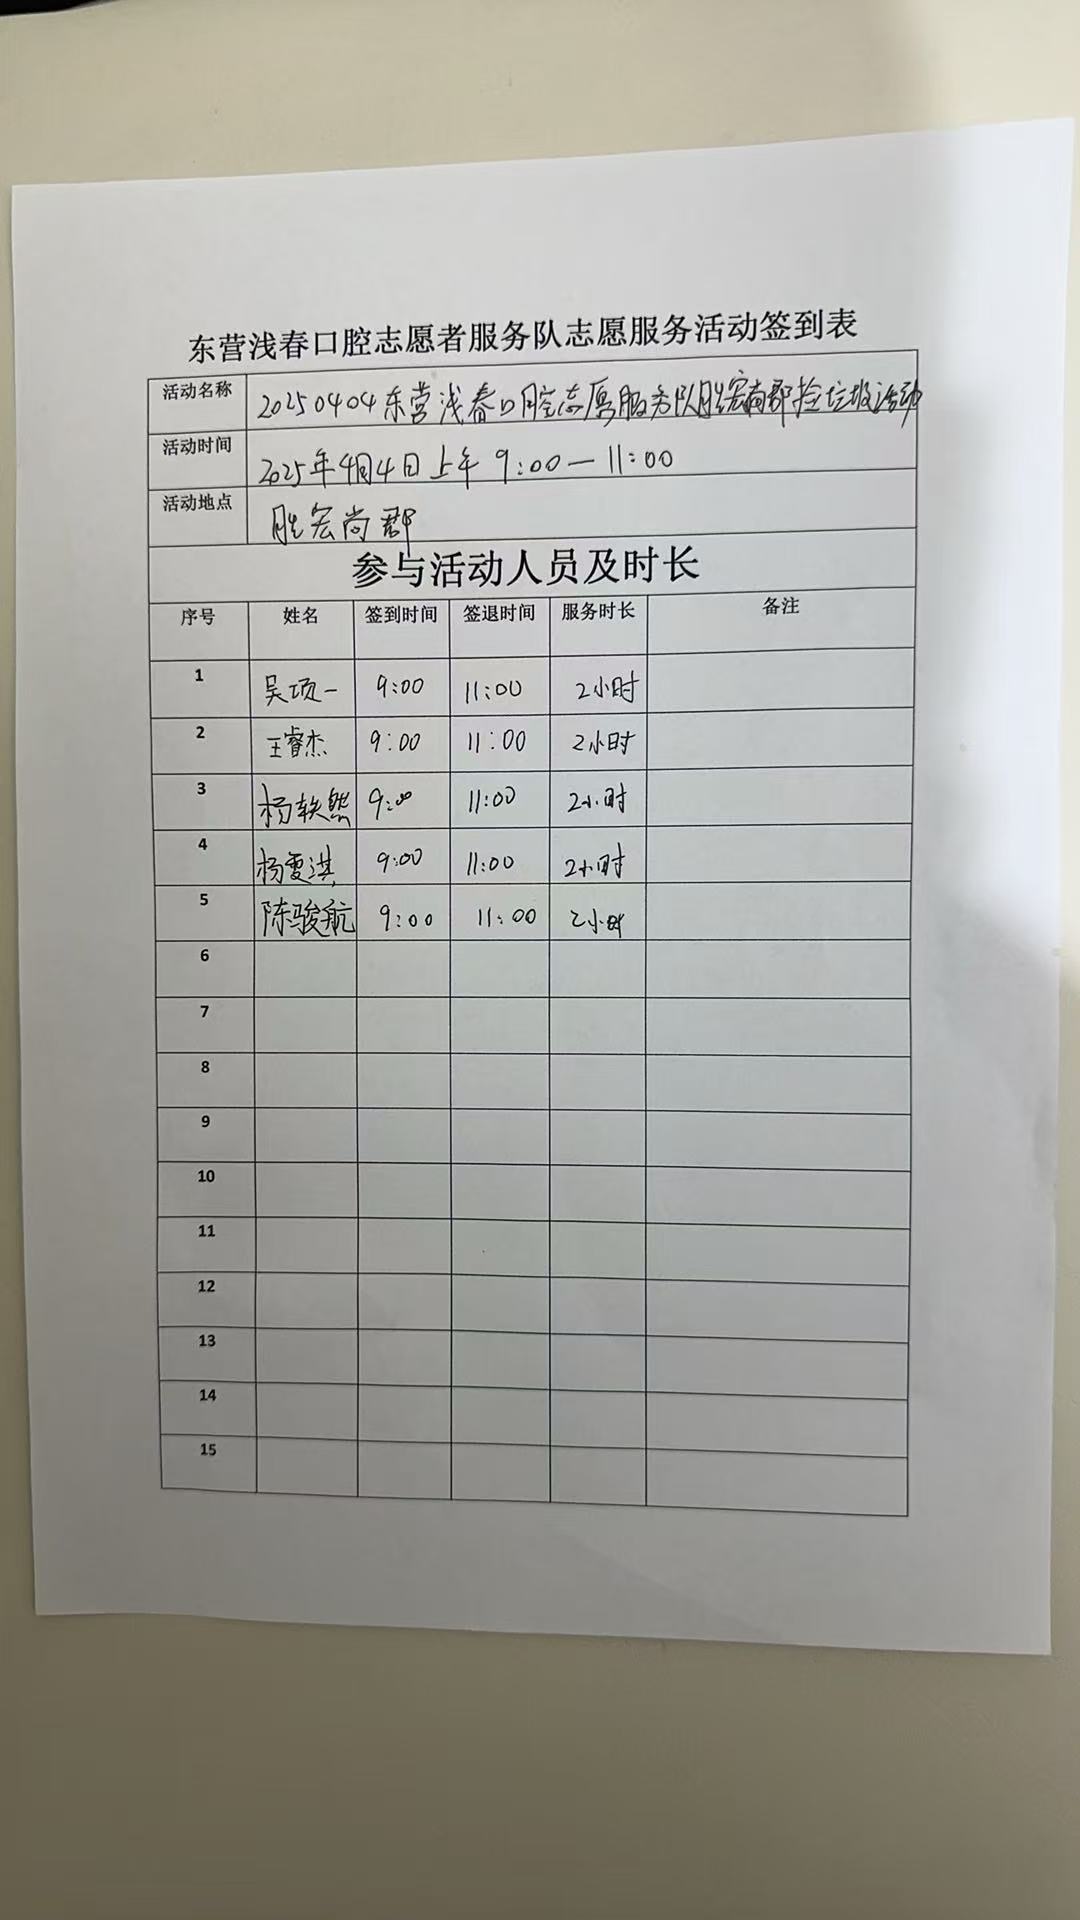 东营浅春口腔志愿者服务队志愿服务活动签到表
活动名称 20250404东营浅春口腔志愿服务队胜宏尚郡捡垃圾活动
活动时间 2025年4月4日上午 9:00—11:00
活动地点 胜宏尚郡
参与活动人员及时长
序号 姓名 签到时间 签退时间 服务时长 备注
1 吴项一 9:00 11:00 2小时
2 王睿杰 9:00 11:00 2小时
3 杨轶然 9:00 11:00 2小时
4 杨雯淇 9:00 11:00 2小时
5 陈骏航 9:00 11:00 2小时
6
7
8
9
10
11
12
13
14
15